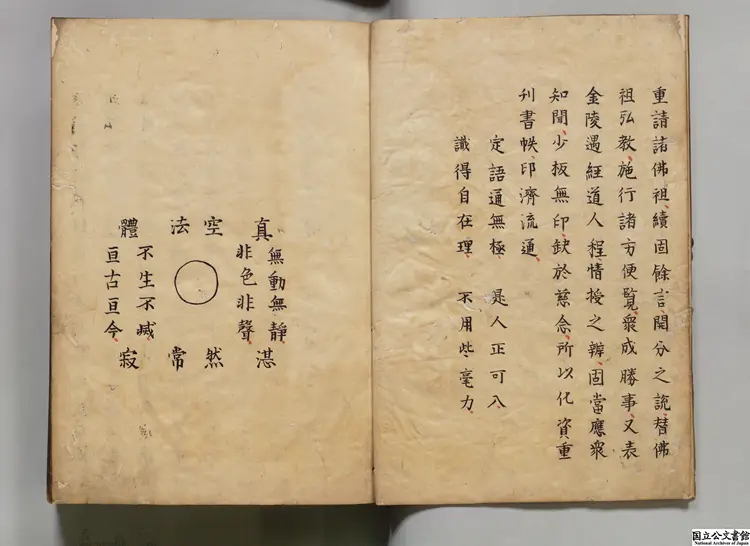 重請諸佛祖續固餘言開分之說替佛
祖弘教施行諸方便覧衆成勝事又表
金陵遇經道人程情授之辦固當應衆
知聞少板無印欽於慈念所以化資重
刊書帙印濟流通
定語通無極 是人正可入
識得自在理 不用些毫力
真空法體
無動無靜
非色非聲
不生不滅
亘古亘今
湛然常寂
国立公文書館
National Archives of Japan